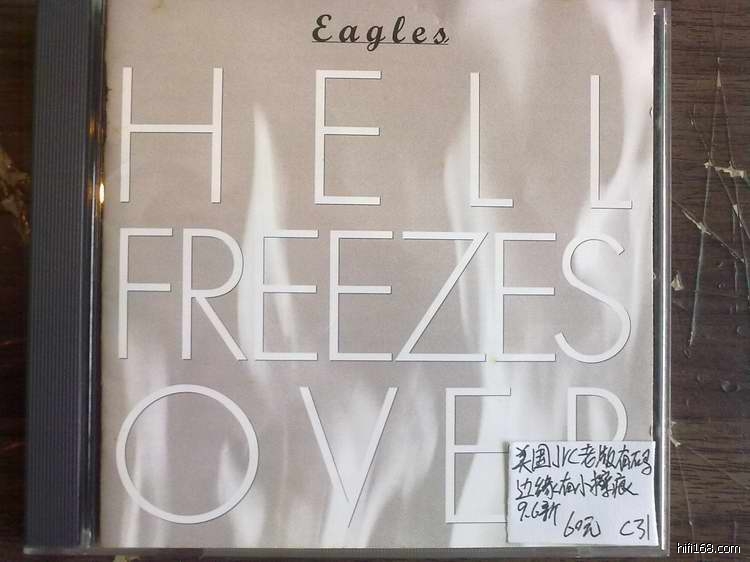 Eagles
HELL
FREEZES
OVER
美国JVC老版有码
边缘有小擦痕
9.6新
60元 C31
hifi168.com